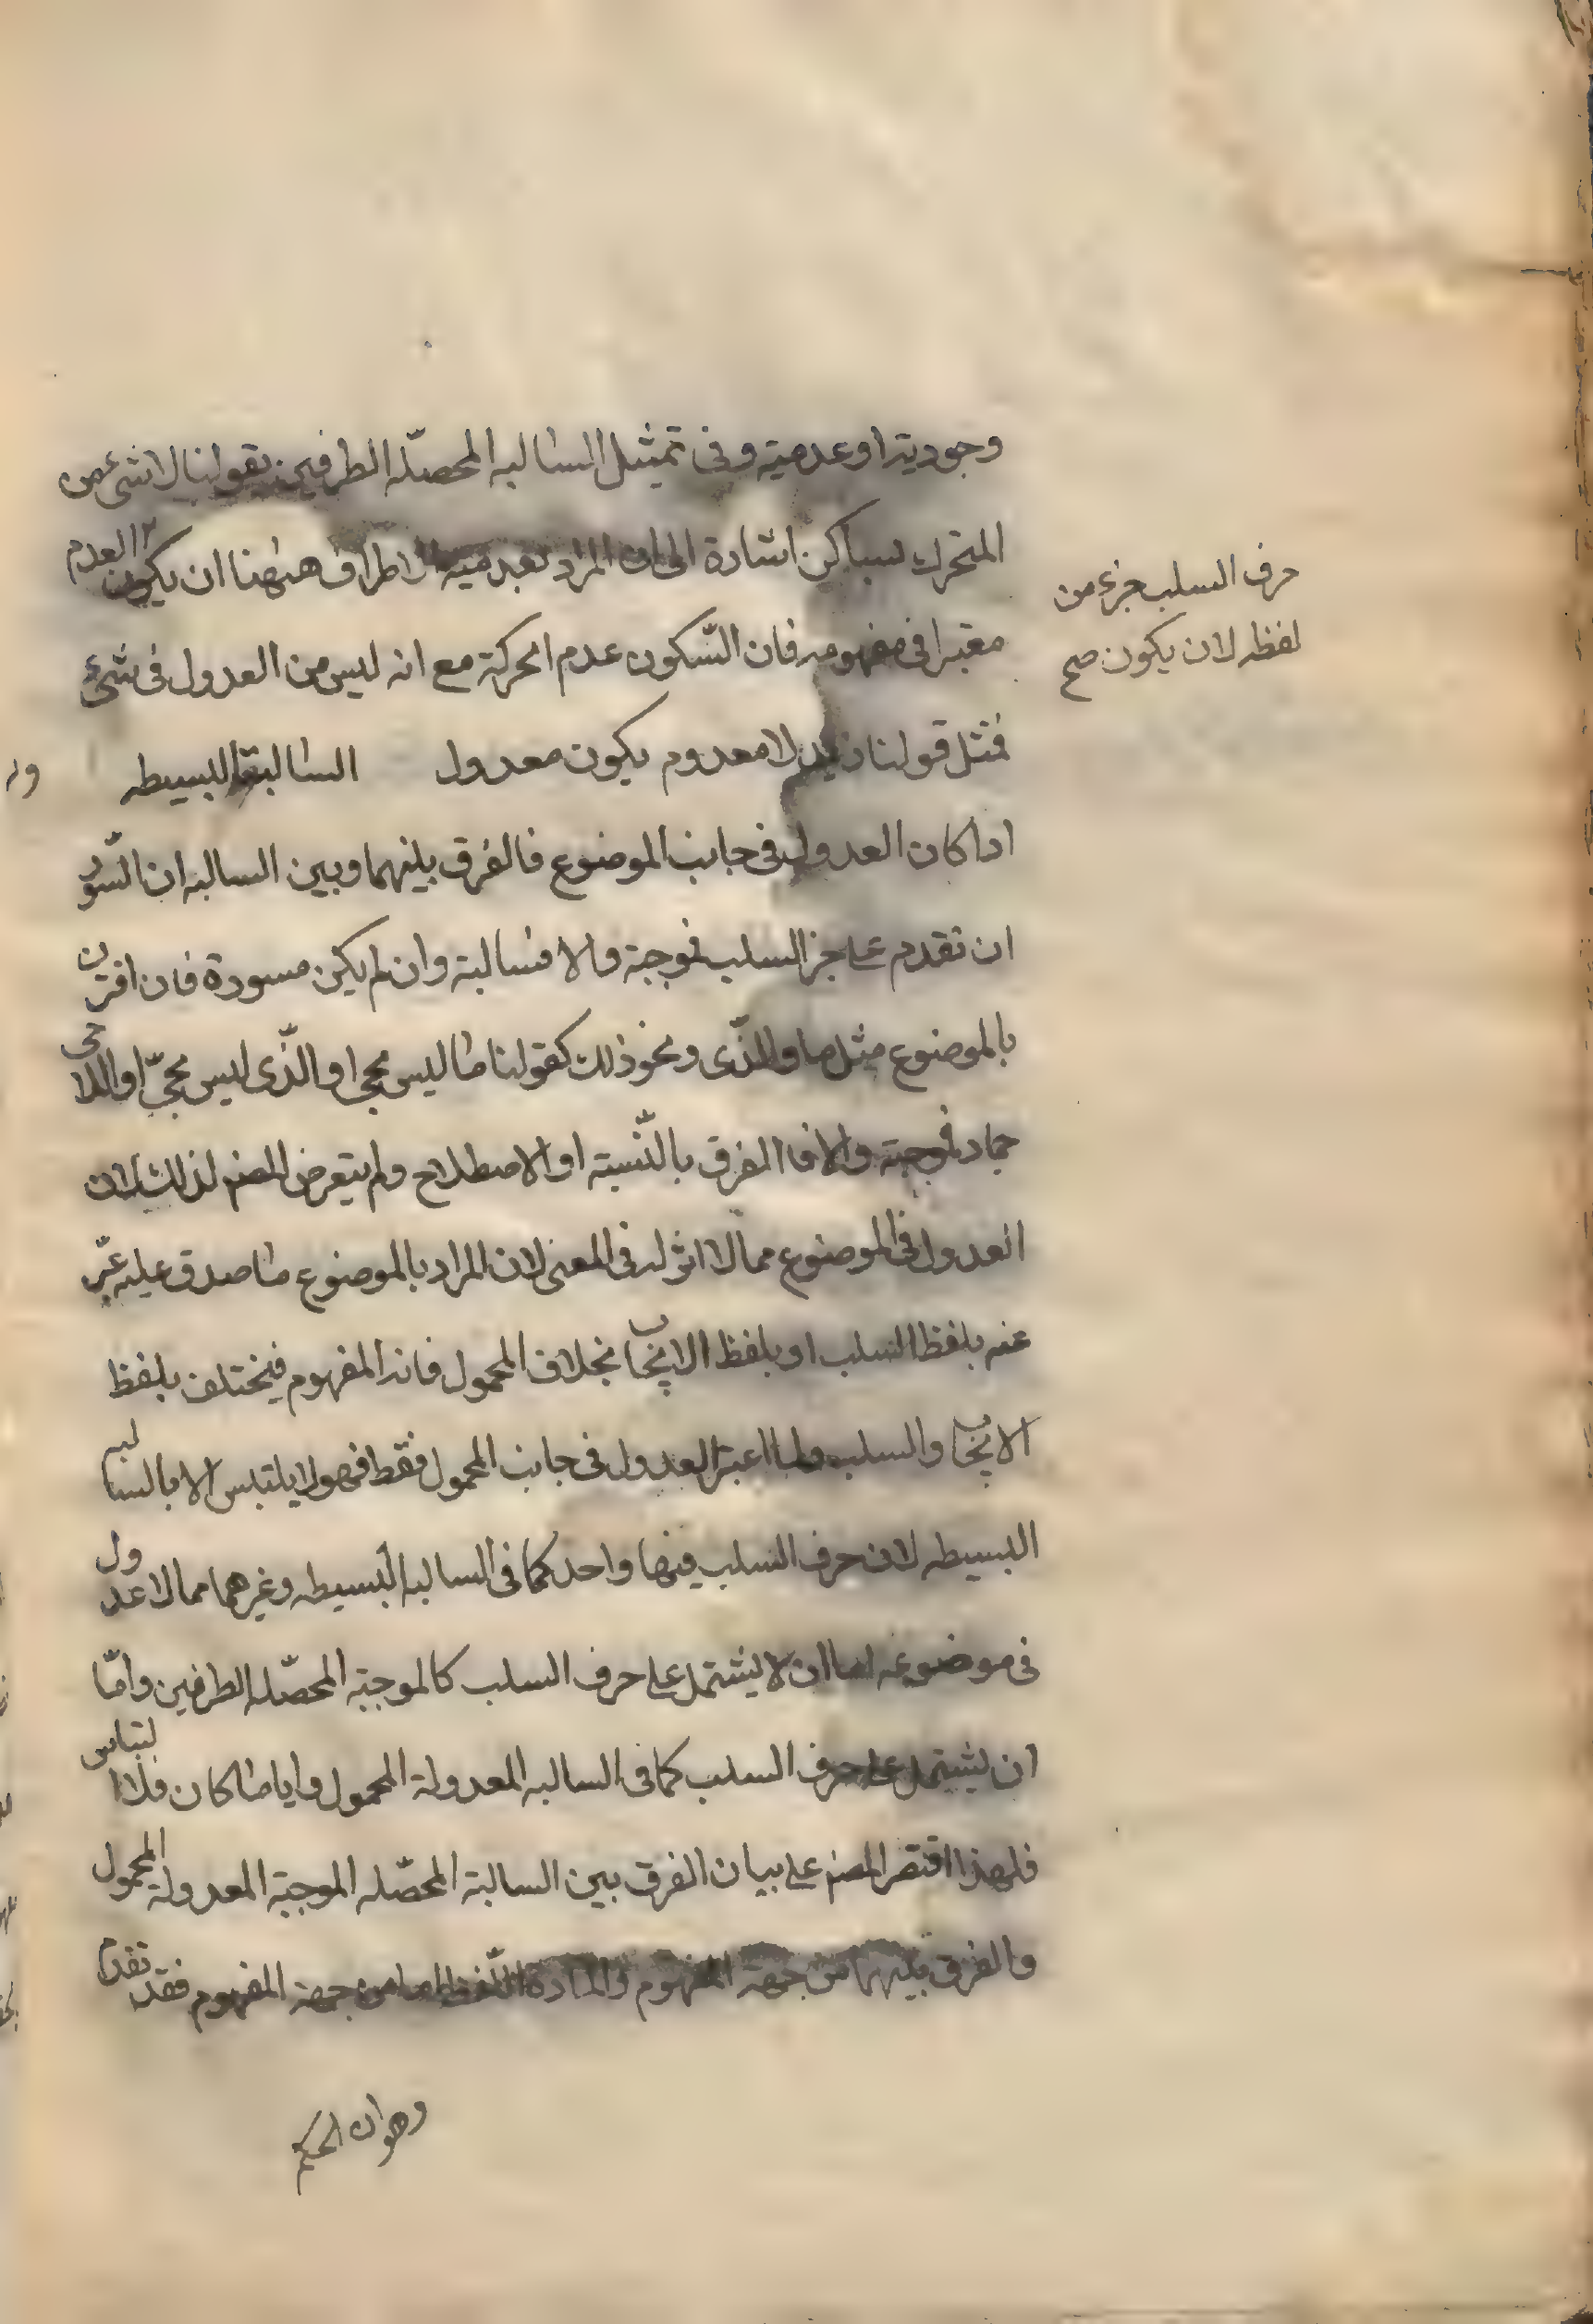 وجودية او عدمية وفى تمثيل السالبه المحصّله الطرفين بقولنا لا شئ من
المتحرك بساكن اشارة الى ان المراد بعدمية الاطراف ههنا ان يكون العدم
حرف السلب جزء من
لفظه لا ان يكون صح
معتبرا فى مفهومه فان السّكون عدم الحركة مع انه ليس من العدول فى شئ
فمثل قولنا زيد لا معدوم يكون معدول السالبة البسيطه
اذا كان العدول فى جانب الموضوع فالفرق بينهما وبين السالبه ان السّور
ان تقدم على جزء السلب فموجبة والا فسالبة وان لم يكن مسورة فان اقترن
بالموضوع مثل ما والذّى ونحو ذلك كقولنا ما ليس بحى او الذّى ليس بحىّ او اللاحى
جماد فموجبة والا فالفرق بالنّسبة او الاصطلاح ولم يتعرض المصنم لذلك لان
العدول فى الموضوع مما لا اثر له فى المعنى لان المراد بالموضوع ما صدق عليه عبّر
عنه بلفظ السلب او بلفظ الايجاب بخلاف المحمول فانه المفهوم فيختلف بلفظ
الايجاب والسلب ولما اعتبر العدول فى جانب المحمول فقط فهو لا يلتبس الا بالسالبه
البسيطه لان حرف السلب فيها واحد كما فى السالبه البسيطه وغيرهما مما لا عدول
فى موضوعه اما ان لا يشتمل على حرف السلب كالموجبة المحصّله الطرفين وامّا
ان يشتمل على حرف السلب كما فى السالبه المعدولة المحمول وايا ما كان فلا التباس
فلهذا اقتصر المصنم على بيان الفرق بين السالبة المحصّله الموجبة المعدولة المحمول
والفرق بينهما من جهة المفهوم والمادة اللّفظ اما من جهة المفهوم فقد تقدم
وهو ان الحكم